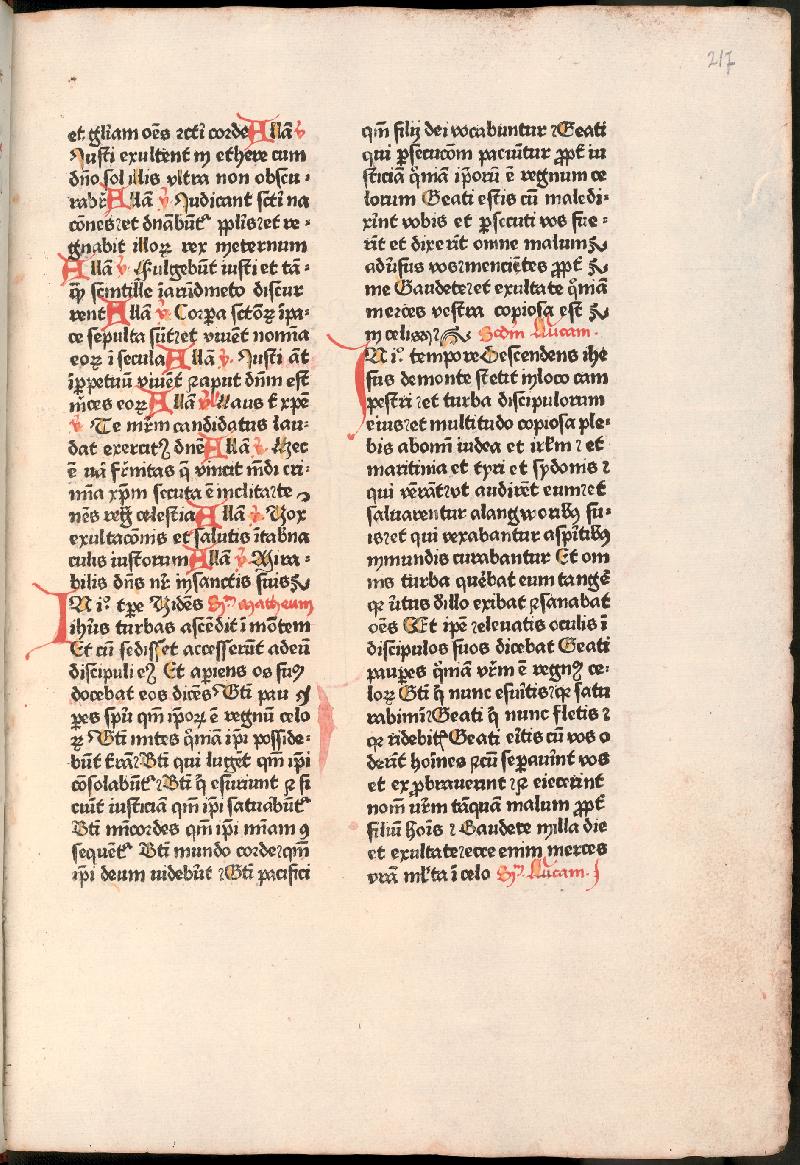 217
et gl̄iam oēs rcti corde Allā v̄
Iusti exultent in ethere cum
dn̄o sol illis vltra non obscu-
rabīt Allā v̄. Iudicant sctī na
cōnes et dn̄abūt᷑ ppl̄is et re-
gnabit illoꝝ rex ineternum
Allā v̄. Fulgebūt iusti et tā-
ꝗ̄ scintille ī arūdineto discur
rent Allā v̄. Corpa sctōꝝ ī pa-
ce sepulta sūt et viuēt nomīa
eoꝝ ī secula Allā v̄. Iusti āt
ī ppetuū viuēt ⁊ aput dn̄m est
m̄ces eoꝝ Allā v̄ Laus t̄ xpē
v̄. Te mr̄m candidatus lau-
dat exercitꝯ dnē Allā v̄. Hec
ē ua fr̄nitas q̄ vincit mūdi cri-
mīa xpm̄ secuta ē inclita te
nēs regꝭ celestia Allā v̄. Vox
exultacōnis et salutis ī tabīna
culis iustorum Allā v̄. Mira-
bilis dn̄s nr̄ in sanctis suis
In i°. tpe Vidēs Sm̄ Matheum
ihūs turbas ascēdit ī mōtem
Et cū sedisset accesserūt ad eū
discipuli eꝯ Et apiens os suꝯ
docebat eos dicēs Bt̄i pau
peres spū qm̄ ip̄oꝝ ē regnū celo
ꝝ Bt̄i mites qm̄a ip̄i posside-
būt t̄rā Bt̄i qui lugēt qm̄ ip̄i
cōsolabūt᷑ Bt̄i q̄ esuriunt ⁊ si
ciūt iusticiā qm̄ ip̄i saturabūt᷑
Bt̄i mīcordes qm̄ ip̄i mīam ꝯ
sequēt᷑ Bt̄i mundo corde qm̄
ip̄i deum uidebūt Bt̄i pacifici
qm̄ filij dei vocabuntur Beati
qui psecucōm paciūtur ꝓpt̄ iu
sticiā qm̄a ip̄orū ē regnum ce
lorum Beati estis cū maledi-
xīnt vobis et psecuti vos fue-
rīt et dixerīt omne malum
aduersus vos mencientes ꝓpt̄
me Gaudete et exultate qm̄a
merces vestra copiosa est
in celis Scdm̄ Lucam.
In i°. tempore Descendens ihe
sus de monte stetit in loco cam
pestri et turba discipulorum
eius et multitudo copiosa ple-
bis ab omni iudea et irl̄m et
maritima et tyri et sydonis
qui venerāt vt audirēt eum et
saluarentur a langworibꝯ su-
is et qui vexabantur a spiritibꝯ
inmundis curabantur Et om
nis turba querebat eum tangere
qꝛ uirtus de illo exibat ⁊ sanabat
oēs Et ipe eleuatis oculis ī
discipulos suos dicebat Beati
paupes qm̄a vr̄m ē regnū ce-
loꝝ Bt̄i q̄ nunc esuritis qꝛ satu
rabimī Beati q̄ nunc fletis
qꝛ ridebitꝭ Beati eritis cū vos o
derīt hoīnes ⁊ cū sepauīnt vos
et exprobrauerint ⁊ eiecerint
nom̄ vr̄m tāquā malum ꝓpt̄
filiū hoīs Gaudete in illa die
et exultate ecce enim merces
vrā ml̄ta ī celo Sm̄ Lucam.